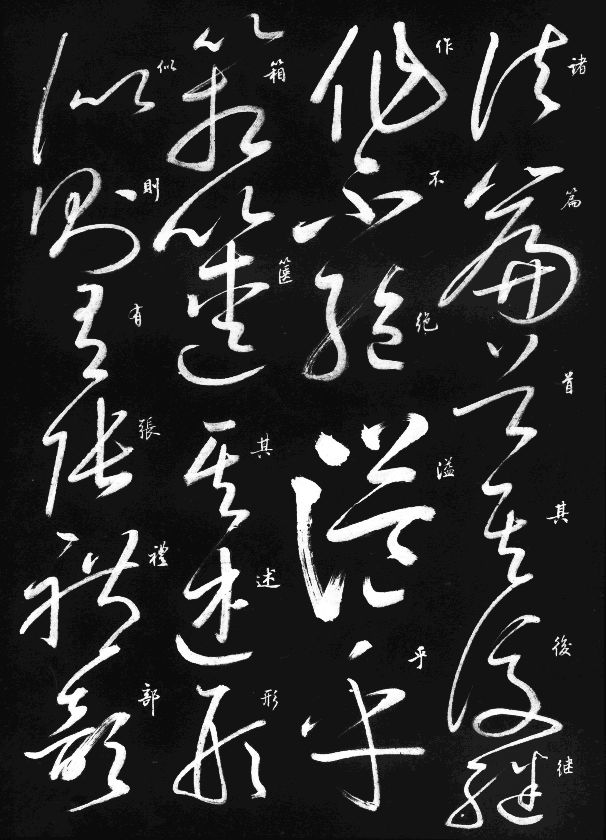 諸篇首其後继
作不絶溢乎
箱篋其述形
似則有張禮部